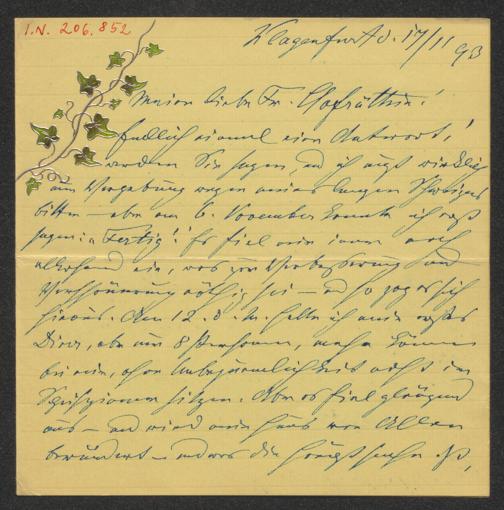 I.N. 206.852
Klagenfurt d. 17/11 93
Meine liebe Fr. Hofräthin!
Endlich einmal eine Antwort,!
werden Sie sagen, und ich muß wirklich
um Vergebung wegen meines langen Schweigens
bitten – aber am 6. November konnte ich erst
sagen: „Fertig!" Es fiel mir immer noch
allerhand ein, was zur Verbesserung und
Verschönerung nöthig sei – und so zog es sich
hinaus. Am 12. d. M. hatte ich mein erstes
Diner, aber nur 8 Personen, mehr können
bei mir, ohne Unbequemlichkeit nicht im
Speisezimmer sitzen. Aber es fiel glänzend
aus – und wird mein Haus von Allen
bewundert – und was die Hauptsache ist,